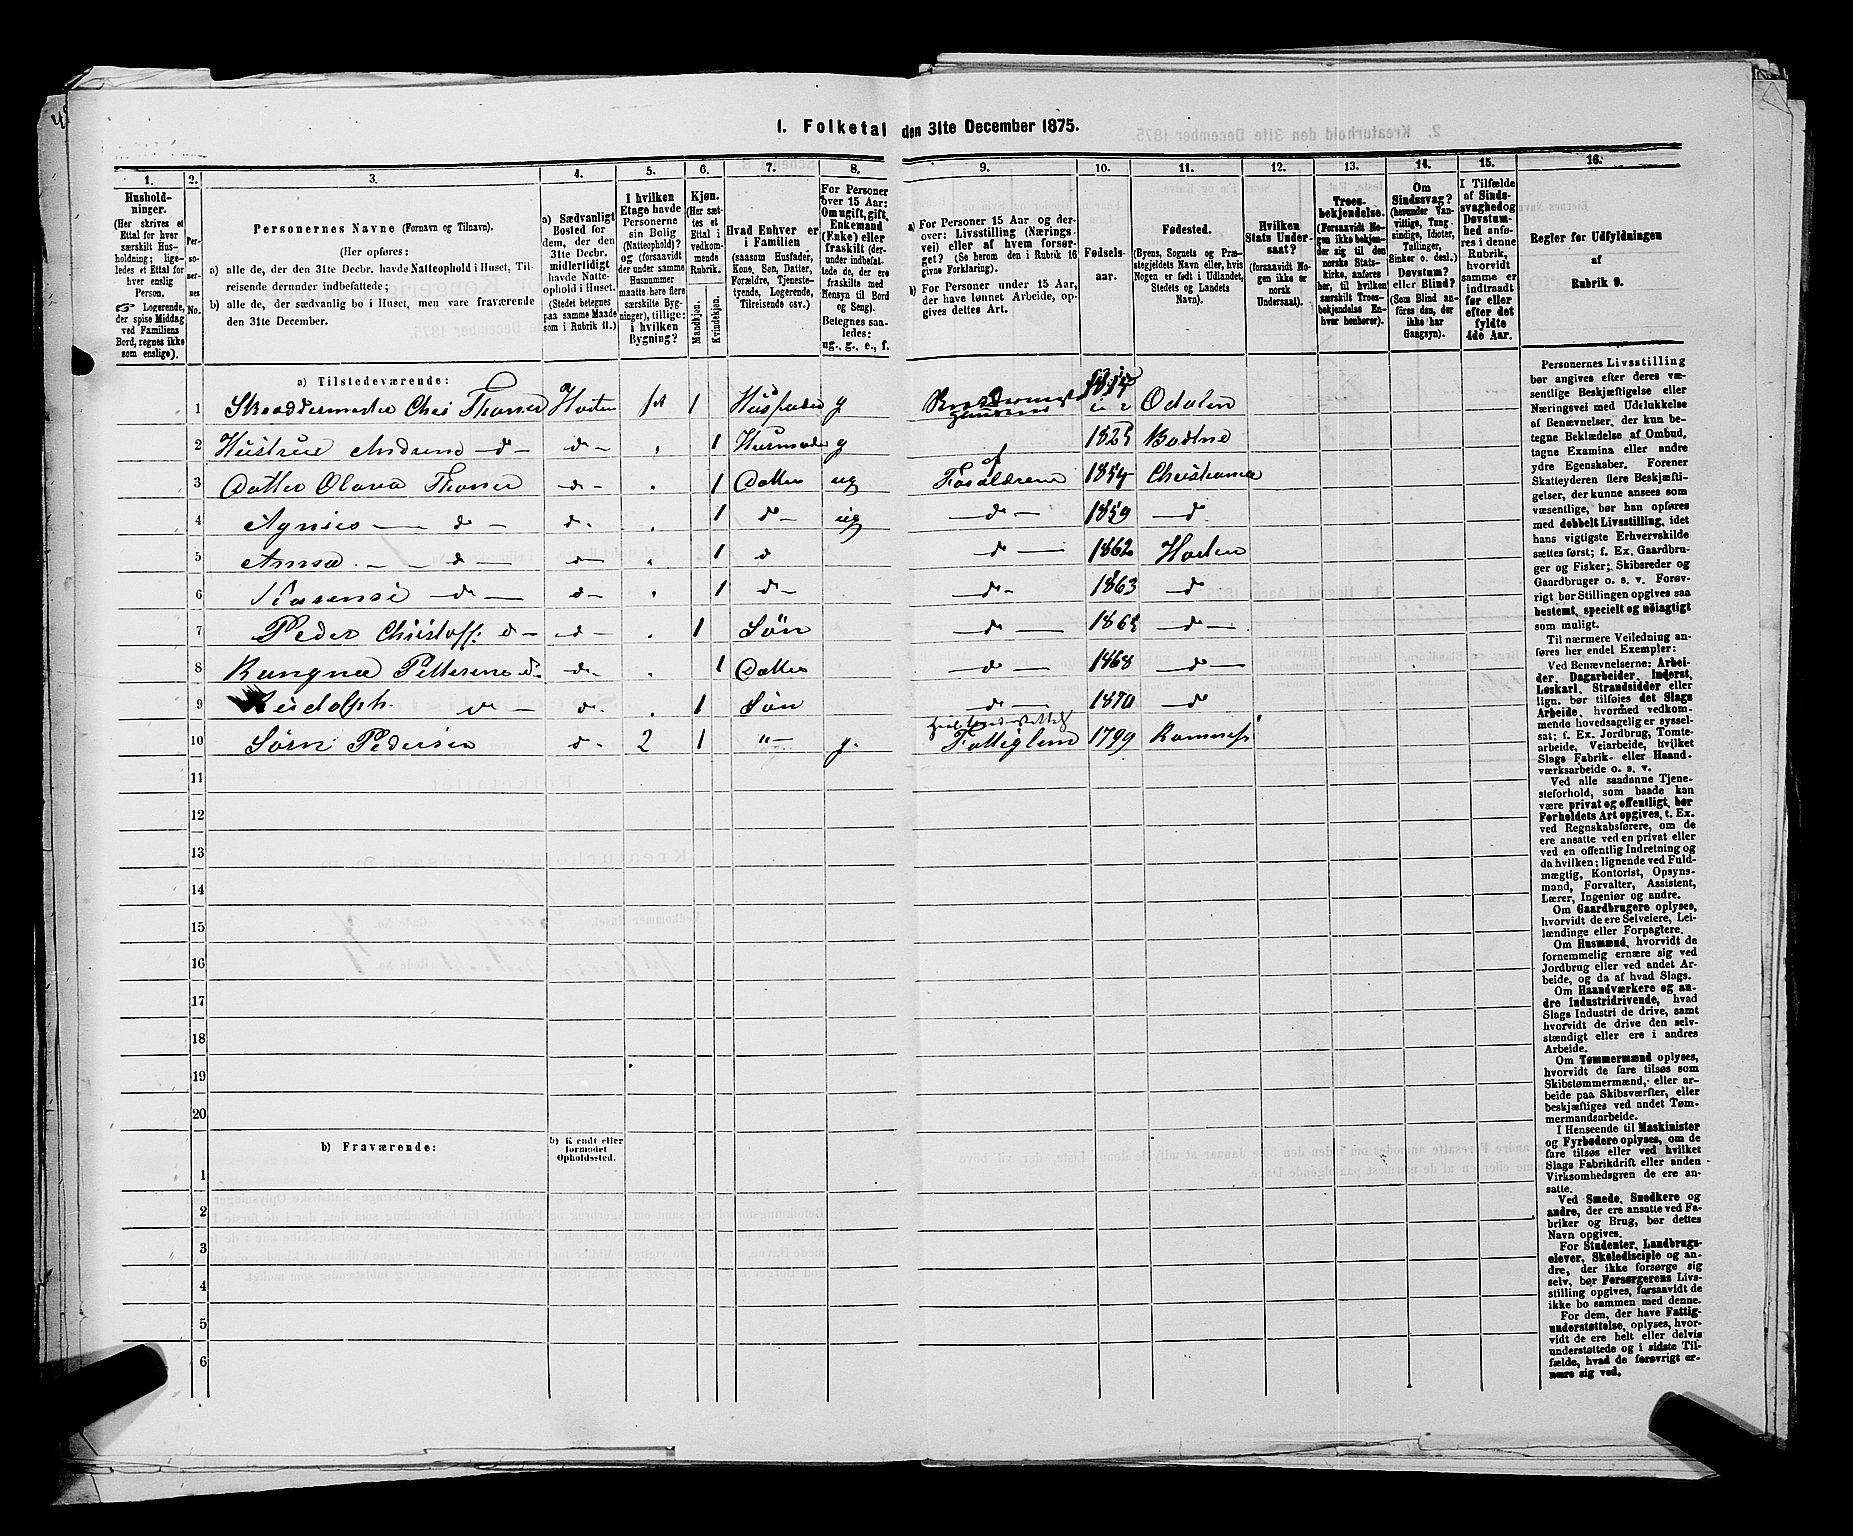 1. Folketal den 31te December 1875.
1. 2. 3. 4. 5. 6. 7. 8. 9. 10. 11. 12. 13. 14. 15. 16.
Hushold-
ninger.
(Her skrives et
Ettal for hver
særskilt Hus-
holdning; lige-
ledes et Ettal for
hver enslig
Person.
Logerende,
der spise Middag
ved Familiens
Bord, regnes ikke
som enslige).
Per-
so-
ner-
nes
No.
Personernes Navne (Fornavn og Tilnavn).
(Her opføres:
a) alle de, der den 31te Decbr. havde Natteophold i Huset, Til-
reisende derunder indbefattede;
b) alle de, der sædvanlig bo i Huset, men vare fraværende
den 31te December.
a) Sædvanligt
Bosted for
dem, der den
31te Decbr.
midlertidigt
havde Natte-
ophold i Huset.
(Stedet betegnes
paa samme Maade
som i Rubrik 11.)
I hvilken
Etage havde
Personerne
sin Bolig
(Natteophold)?
og (forsaavidt
der under samme
Husnummer
maatte høre flere
særskilte Byg-
ninger), tillige:
i hvilken
Bygning?
Kjøn.
(Her sæt-
tes et
Ettal i
vedkom-
mende
Rubrik.
Mandkjøn.
Kvindekjøn.
Hvad Enhver er
i Familien
(saasom Husfader,
Kone, Søn, Datter,
Forældre, Tjeneste-
tyende, Logerende,
Tilreisende osv.)
For Personer
over 15 Aar:
Om ugift, gift,
Enkemand
(Enke) eller
fraskilt (der-
under indbefat-
tede de, der ere
fraskilte med
Hensyn til Bord
og Seng).
Betegnes saa-
ledes:
ug., g., e., f.
a) For Personer 15 Aar og der-
over: Livsstilling (Nærings-
vei) eller af hvem forsør-
get? (Se herom den i Rubrik 16
givne Forklaring).
b) For Personer under 15 Aar,
der have lønnet Arbeide, op-
gives dettes Art.
Fødsels-
aar.
Fødested.
(Byens, Sognets og Præ-
stegjeldets Navn eller, hvis
Nogen er født i Udlandet,
Stedets og Landets
Navn).
Hvilken
Stats Under-
saat?
(forsaavidt No-
gen ikke er
norsk
Undersaat).
Troes-
bekjendelse.
(Forsaavidt No-
gen ikke bekjen-
der sig til den
norske Stats-
kirke, anføres
her, til hvilket
særskilt Troes-
bekjendelse En-
hver henhører).
Om
Sindssvag?
(herunder Van-
vittige, Tung-
sindige, Idioter,
Tullinger,
Sinker o. desl.)
Døvstum?
eller Blind?
(Som Blind an-
føres den, der
ikke har
Gangsyn).
I Tilfælde
af Sinds-
svaghed og
Døvstum-
hed anfø-
res i denne
Rubrik,
hvorvidt
samme er
indtraadt
før eller
efter det
fyldte
4de Aar.
Regler for Udfyldningen
af
Rubrik 9.
a) Tilstedeværende:
1 Skræddermester Thoner Horten 1st 1 Husfader g Odalen
2 Hustrue Andrine -d- -d- 1 Husmoder g 1825
3 Datter Olava Thoner -d- 1 Datter ug af Forældrene 1854 Christiania
4 Agnies -d- d- 1 d- ug -d- 1859 -d-
5 Anna -d- d- 1 d -d- 1862 Horten
6 -d- -d- 1 d- -d- 1863 d
7 Peder Christoff: -d- -d- 1 Søn -d- 1865 -d-
8 Rangna Petterine d- -d- 1 Datter -d- 1868 -d-
9 Rudolph -d- -d- 1 Søn -d- 1870 -d
10 Sørn Pedersen d- 2 1 "- g. Fattiglem 1799 Ramnes
11
12
13
14
15
16
17
18
19
20
b) Fraværende:
b) Kjendt eller
formodet
Opholdssted.
1
2
3
4
5
6
Personernes Livsstilling
bør angives efter deres væ-
sentlige Beskjæftigelse eller
Næringsvei med Udelukkelse
af Benævnelser, der kun be-
tegne Beklædelse af Ombud,
tagne Examina eller andre
ydre Egenskaber. Forener
Skatteyderen flere Beskjæfti-
gelser, der kunne ansees som
væsentlige, bør han opføres
med dobbelt Livsstilling, idet
hans vigtigste Erhvervskilde
sættes først; f. Ex. Gaardbru-
ger og Fisker; Skibsreder og
Gaardbruger o. s. v. Forøv-
rigt bør Stillingen opgives saa
bestemt, specielt og nøiagtigt
som muligt.
Til nærmere Veiledning an-
føres her endel Exempler:
Ved Benævnelserne: Arbei-
der, Dagarbeider, Inderst,
Løskarl, Strandsidder eller
lign. bør tilføies det Slags
Arbeide, hvormed vedkom-
mende hovedsagelig er syssel-
sat; f. Ex. Jordbrug, Tomte-
arbeide, Veiarbeide, hvilket
Slags Fabrik- eller Haand-
værksarbeide o. s. v.
Ved alle saadanne Tjene-
steforhold, som baade kan
være privat og offentligt, bør
Forholdets Art opgives, t. Ex.
ved Regnskabsførere, om de
ere ansatte ved en privat eller
ved en offentlig Indretning og
da hvilken; lignende ved Fuld-
mægtig, Kontorist, Opsyns-
mand, Forvalter, Assistent,
Lærer, Ingeniør og andre.
Om Gaardbrugere oplyses,
hvorvidt de ere Selveiere, Lei-
lændinge eller Forpagtere.
Om Husmænd, hvorvidt de
fornemmelig ernære sig ved
Jordbrug eller ved andet Ar-
beide, og da af hvad Slags.
Om Haandværkere og an-
dre Industridrivende, hvad
Slags Industri de drive, samt
hvorvidt de drive den selv-
stændigt eller ere i andres
Arbeide.
Om Tømmermænd oplyses,
hvorvidt de fare tilsøs som
Skibstømmermænd, eller ar-
beide paa Skibsværfter, eller
beskjæftiges ved andet Tøm-
mermandsarbeide.
I Henseende til Maskinister
og Fyrbødere oplyses, om de
fare tilsøs eller ved hvilket
Slags Fabrikdrift eller anden
Virksomhedsgren de ere an-
satte.
Ved Smede, Snedkere og
andre, der ere ansatte ved Fa-
briker og Brug, bør dettes
Navn opgives.
For Studenter, Landbrugs-
elever, Skoledisciple og an-
dre, der ikke forsørge sig
selv, bør Forsørgerens Livs-
stilling opgives, forsaavidt de
ikke bo sammen med denne.
For dem, der have Fattig-
understøttelse, oplyses, hvor-
vidt de ere helt eller delvis
understøttede og i sidste Til-
fælde, hvad de forøvrigt er-
nære sig ved.